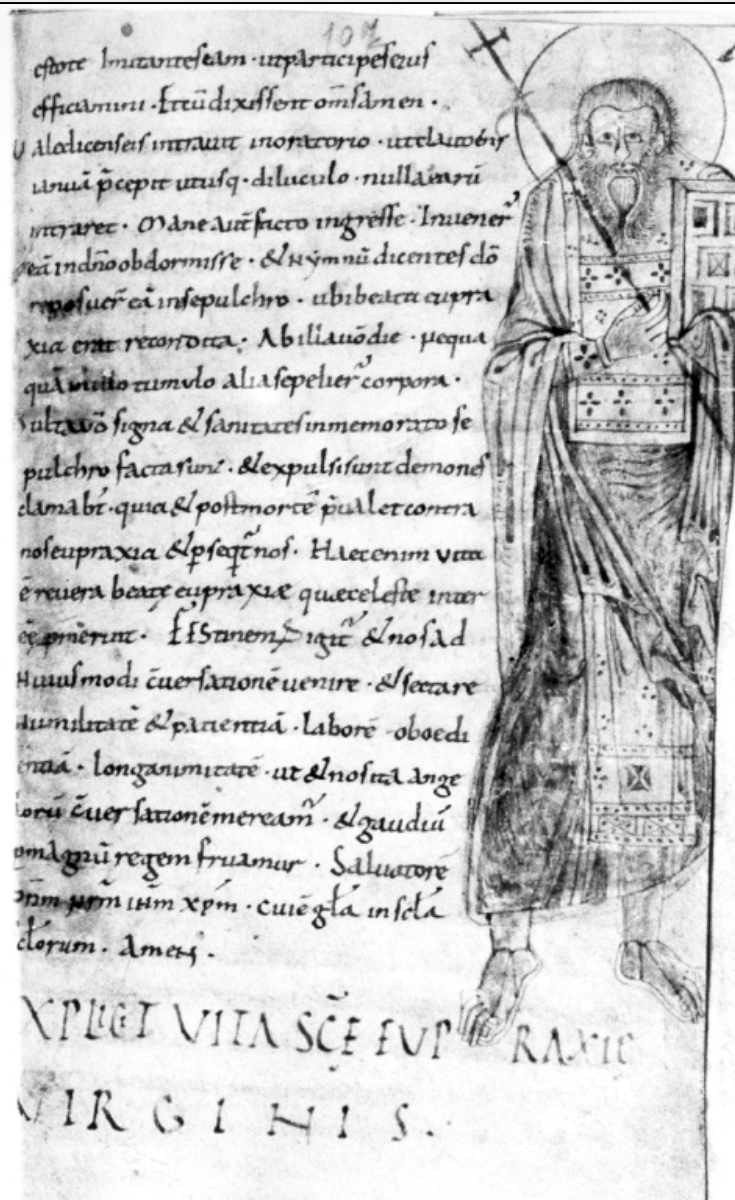 107
estote Imitantes eam · ut participes eius
efficiamini · Et cū dixissent om̄s amen ·
Valedicens eis intravit in oratorio · ut clauderis
ianuā p̄cepit ut usq· diluculo · nulla earū
intraret · Mane aūt facto ingresse · Invener̄
eā in dn̄o obdormisse · & hymnū dicentes dō
reposuer̄ eā in sepulchro · ubi beata eupra
xia erat recondita · Ab illa v̄o die · nequa
quā in illo tumulo alia sepelier̄ corpora ·
Multa v̄o signa & sanitates in memorato se
pulchro facta sunt · & expulsi sunt demones
clamab̄t · quia & post mortē p̄ualet contra
nos eupraxia & p̱seq̄t̄ nos · Haec enim vita
ē revera beatę eupraxiæ quae celeste inter
Festinem igit̄ & nos ad
Huiusmodi c̄versationē venire · & sectare
Humilitatē & patientiā · laborē · oboedi
entiā · longanimitatē · ut & nos ita ange
lorū c̄versationē meream̄ · & gaudiū
magnū regem fruamur · Salvatorē
n̄rm ih̄m xp̄m · cui ē gl̄a in scl̄a
scl̄orum · Amen ·
EXPLICIT VITA SC̄E EUPRAXIE
VIRGINIS ·